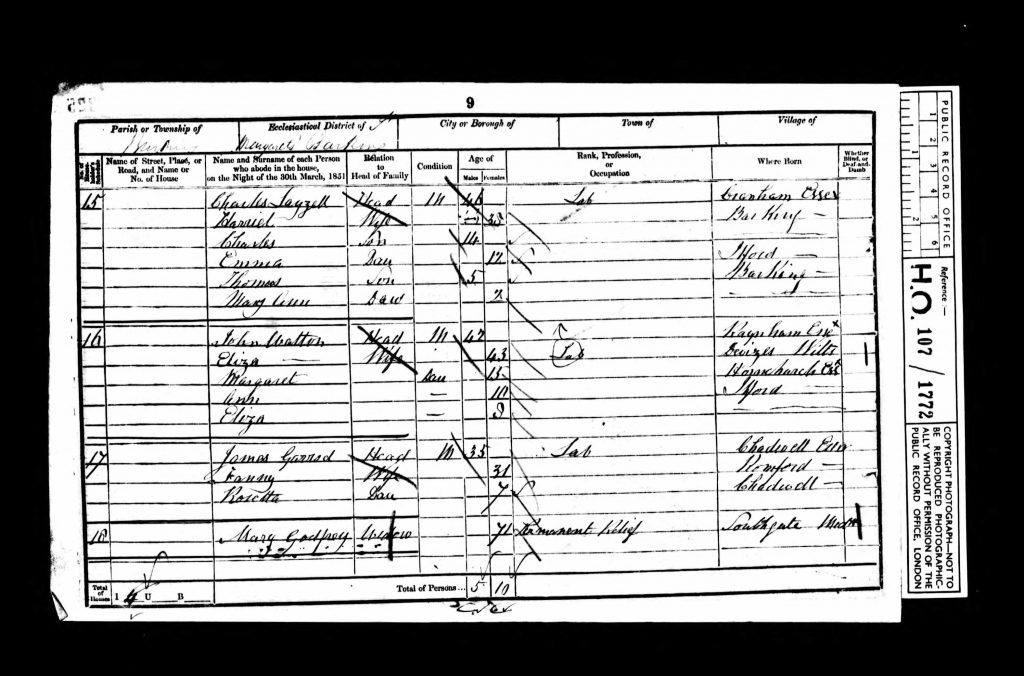 9
Parish or Township of
Ecclesiastical District of
City or Borough of
Town of
Village of
Barking
Margarets Barking
Name of Street, Place, or Road, and Name or No. of House
Name and Surname of each Person who abode in the house, on the Night of the 30th March, 1851
Relation to Head of Family
Condition
Age of
Males Females
Rank, Profession, or Occupation
Where Born
Whether Blind, or Deaf-and-Dumb
15 Charles Head M 46 Lab Cranham Essex
Harriet Wife 38 Barking —
Charles Son 14
Emma Dau 12 Ilford —
Thomas Son 5 Barking —
Mary Ann Daur 2
16 John Watton Head M 42 Lab Raynham Esx
Eliza — Wife 43 Devizes Wilts
Margaret Dau 15 Hornchurch Esx
Ann — 10 Ilford —
Eliza — 8
17 James Garrod Head M 35 Lab Chadwell Essex
Fanny Wife 31 Romford —
Rosetta Dau 7 Chadwell —
18 Mary Godfrey Widow 71 Permanent Relief Southgate Middx
Total of Houses
I 4 U B
Total of Persons... 5 10
PUBLIC RECORD OFFICE
1 2 3 4 5 6
1 2
Reference:—
H.O. 107 / 1772
COPYRIGHT PHOTOGRAPH—NOT TO BE REPRODUCED PHOTOGRAPHICALLY WITHOUT PERMISSION OF THE PUBLIC RECORD OFFICE, LONDON